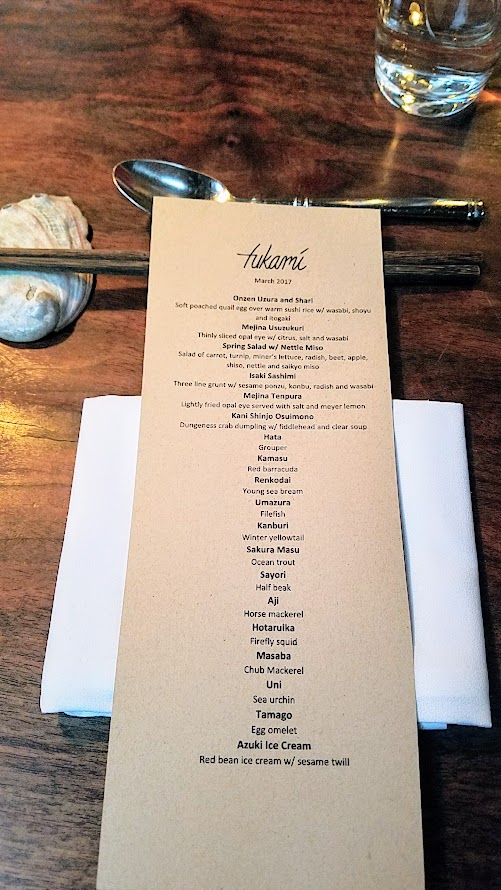 fukamí
March 2017
Onzen Uzura and Shari
Soft poached quail egg over warm sushi rice w/ wasabi, shoyu
and itogaki
Mejina Usuzukuri
Thinly sliced opal eye w/ citrus, salt and wasabi
Spring Salad w/ Nettle Miso
Salad of carrot, turnip, miner's lettuce, radish, beet, apple,
shiso, nettle and saikyo miso
Isaki Sashimi
Three line grunt w/ sesame ponzu, konbu, radish and wasabi
Mejina Tenpura
Lightly fried opal eye served with salt and meyer lemon
Kani Shinjo Osuimono
Dungeness crab dumpling w/ fiddlehead and clear soup
Hata
Grouper
Kamasu
Red barracuda
Renkodai
Young sea bream
Umazura
Filefish
Kanburi
Winter yellowtail
Sakura Masu
Ocean trout
Sayori
Half beak
Aji
Horse mackerel
Hotaruika
Firefly squid
Masaba
Chub Mackerel
Uni
Sea urchin
Tamago
Egg omelet
Azuki Ice Cream
Red bean ice cream w/ sesame twill